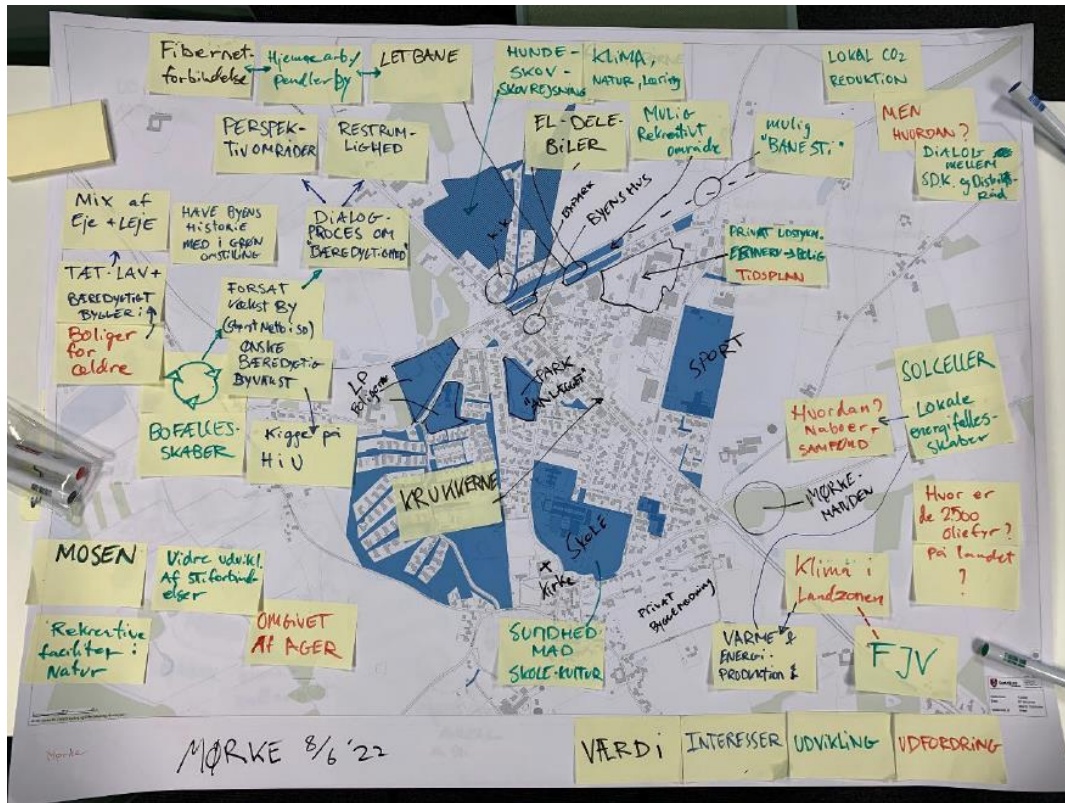 Fibernet-
forbindelse
Hjemmearb/
pendlerby
LETBANE
HUNDE-
SKOV-
SKOVREJSNING
KLIMA,
NATUR, Læring
LOKAL CO2
REDUKTION
PERSPEK-
TIVOMRÅDER
RESTRUM-
LIGHED
EL-DELE-
BILER
MULIG
Rekreativt
område
mulig
"BANESTI"
MEN
HVORDAN?
DIALOG
MELLEM
SDK. og Distrikts
Råd
Mix af
Eje + LEJE
HAVE BYENS
HISTORIE
MED I GRØN
OMSTILLING
DIALOG-
PROCES OM
"BÆREDYGTIGHED"
BYPARK
BYENS HUS
PRIVAT
ERHVERV → BOLIG
TIDSPLAN
TÆT-LAV +
BÆREDYGTIGT
BYGGERI
Boliger
for
ældre
FORSAT
Vækst By
ØNSKE
BÆREDYGTIG
BYVÆKST
LP
Boligerne
PARK
"ANLÆGGET"
SPORT
SOLCELLER
Lokale
energifælles-
skaber
Hvordan?
Naboer,
SAMFUND
BOFÆLLES-
SKABER
Kigge på
HiU
KRUKKERNE
MØRKE-
MANDEN
SKOLE
Hvor er
de 2500
oliefyr?
på landet
?
MOSEN
Vidre udvikl.
Af stiforbind
elser
+
Kirke
Klima i
Landzonen
Rekreative
faciliteter i
Natur
OMGIVET
Af AGER
SUNDHED
MAD
SKOLE-KULTUR
PRIVAT
Byggemodning
VARME &
ENERGI-
PRODUKTION
FJV
Mørke
MØRKE 8/6 '22
VÆRDI
INTERESSER
UDVIKLING
UDFORDRING